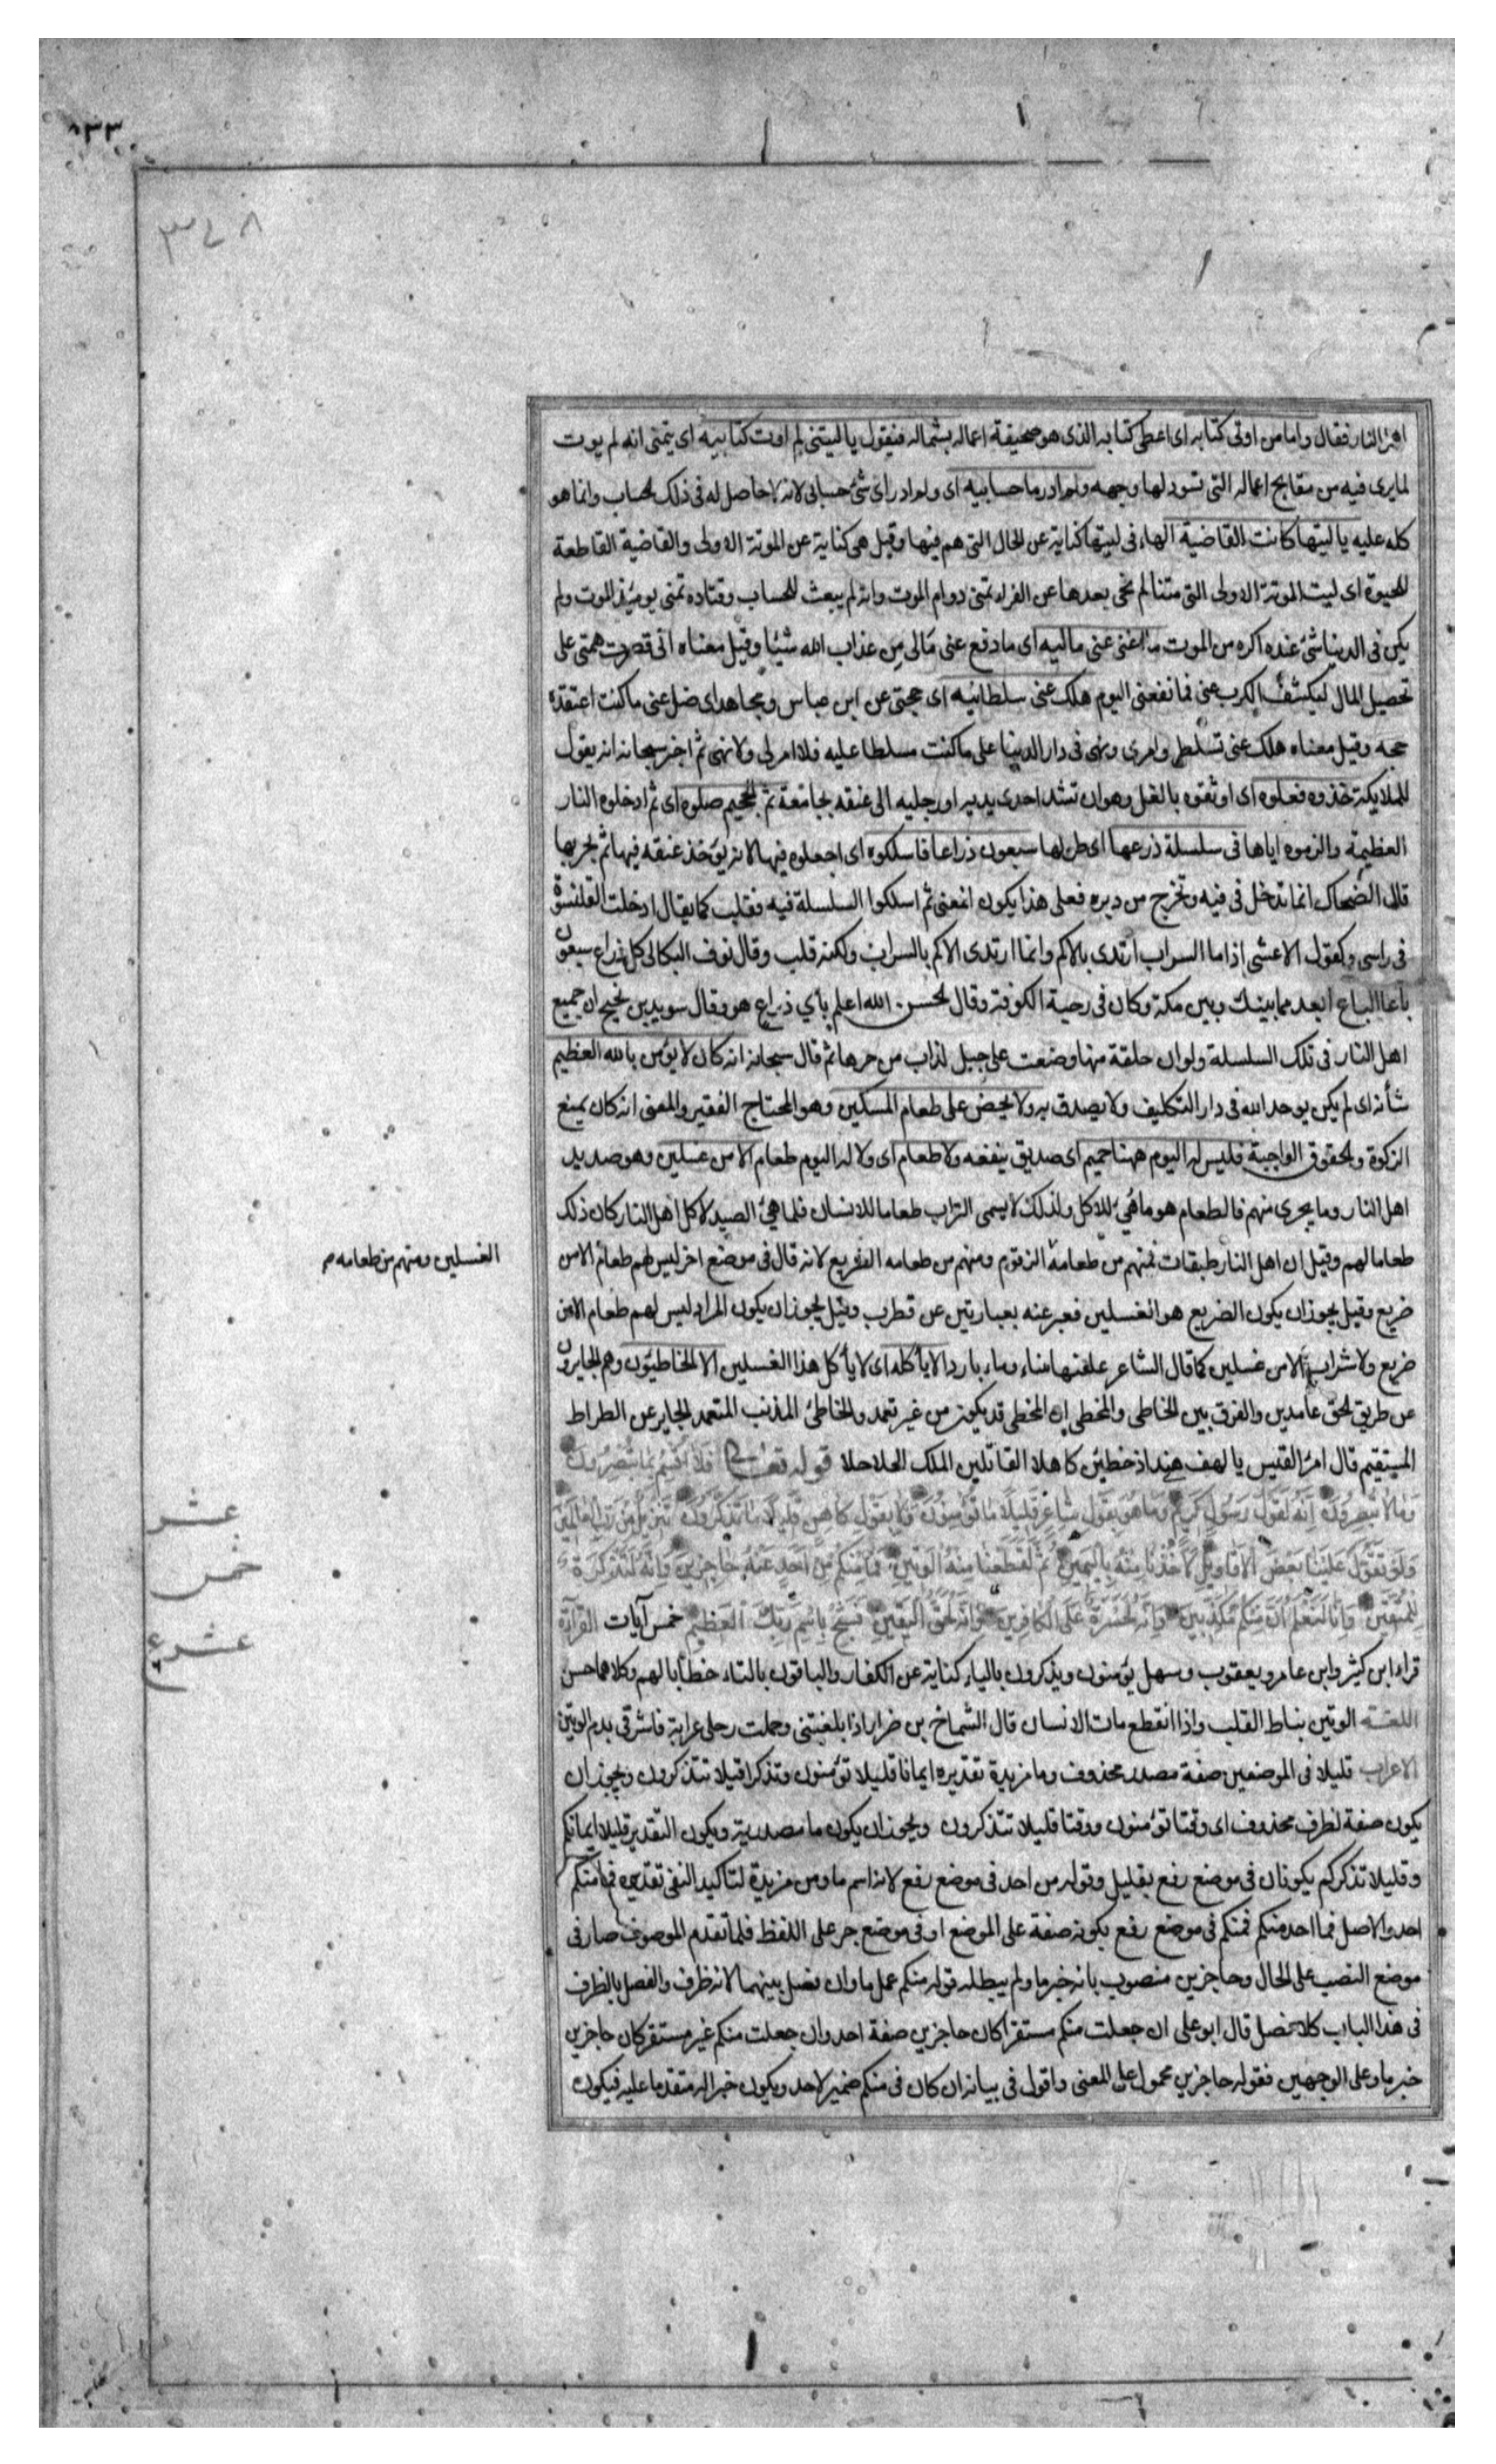 ٨٣٣
٣٧٨
اهل النار فقال واما من اوتى كتابه اى اعطى كتابه الذى هو صحيفة اعماله بشماله فيقول يا ليتنى لم اوت كتابيه اى يتمنى انه لم يوت
لما يرى فيه من مقابح اعماله التى تسود لها وجهه ولم ادر ما حسابيه اى ولم ادر اى شئ حسابى لانه لا حاصل له فى ذلك الحساب وانما هو
كله عليه يا ليتها كانت القاضية الهاء فى ليتها كناية عن الحال التى هم فيها وقيل هى كناية عن الموتة الاولى والقاضية القاطعة
للحيوة اى ليت الموتة الاولى التى متنا لم نحى بعدها عن الفراء تمنى دوام الموت وانه لم يبعث للحساب وقتاده تمنى يومئذ الموت ولم
يكن فى الدنيا شئ عنده اكره من الموت ما اغنى عنى ماليه اى ما دفع عنى مالى من عذاب الله شيئا وقيل معناه انى قصرت همتى على
تحصيل المال ليكشف الكرب عنى فما نفعنى اليوم هلك عنى سلطانيه اى حجتى عن ابن عباس ومجاهد اى ضل عنى ما كنت اعتقده
حجه وقيل معناه هلك عنى تسلطى وامرى ونهى فى دار الدنيا على ما كنت مسلطا عليه فلا امر لى ولا نهى ثم اخبر سبحانه انه يقول
للملايكة خذوه فغلوه اى اوثقوه بالغل وهو ان تشد احدى يديه او رجليه الى عنقه بجامعة ثم الجحيم صلوه اى ثم ادخلوه النار
العظيمة والزموه اياها فى سلسلة ذرعها اى طولها سبعون ذراعا فاسلكوه اى اجعلوه فيها لانه يؤخذ عنقه فيها ثم يجر بها
قال الضحاك انما تدخل فى فيه وتخرج من دبره فعلى هذا يكون المعنى ثم اسلكوا السلسلة فيه فقلب كما يقال ادخلت القلنسوة
فى راسى وكقول الاعشى اذا ما السراب ارتدى بالاكم وانما ارتدى الاكم بالسراب ولكنه قلب وقال نوف البكالى كل ذراع سبعون
باعا الباع ابعد مما بينك وبين مكة وكان فى رحبة الكوفة وقال الحسن الله اعلم بأي ذراع هو وقال سويد بن نجيح ان جميع
اهل النار فى تلك السلسلة ولو ان حلقة منها وضعت على جبل لذاب من حرها ثم قال سبحانه انه كان لا يؤمن بالله العظيم
شأنه اى لم يكن يوحد الله فى دار التكليف ولا يصدق به ولا يحض على طعام المسكين وهو المحتاج الفقير والمعنى انه كان يمنع
الزكوة والحقوق الواجبة فليس له اليوم ههنا حميم اى صديق ينفعه ولا طعام اى ولا له اليوم طعام الا من غسلين وهو صديد
اهل النار وما يجرى منهم فالطعام هو ما هيئ للاكل ولذلك لا يسمى التراب طعاما للانسان فلما هيئ الصديد لاكل اهل النار كان ذلك
طعاما لهم وقيل ان اهل النار طبقات فمنهم من طعامه الزقوم ومنهم من طعامه الضريع لانه قال فى موضع اخر ليس لهم طعام الا من
الغسلين ومنهم من طعامه م
ضريع وقيل يجوز ان يكون الضريع هو الغسلين فعبر عنه بعبارتين عن قطرب وقيل يجوز ان يكون المراد ليس لهم طعام الا من
ضريع ولا شراب الا من غسلين كما قال الشاعر علفتها تبنا وماء باردا لا يأكله اى لا يأكل هذا الغسلين الا الخاطئون وهم الجايرون
عن طريق الحق عامدين والفرق بين الخاطى والمخطى ان المخطى قد يكون من غير تعمد والخاطئ المذنب المتعمد الجاير عن الطراط
المستقيم قال امرؤ القيس يا لهف هند اذ خطئن كاهلا القاتلين الملك الحلاحلا قوله تعالى فَلَا أُقْسِمُ بِمَا تُبْصِرُونَ
وَمَا لَا تُبْصِرُونَ إِنَّهُ لَقَوْلُ رَسُولٍ كَرِيمٍ وَمَا هُوَ بِقَوْلِ شَاعِرٍ قَلِيلًا مَا تُؤْمِنُونَ وَلَا بِقَوْلِ كَاهِنٍ قَلِيلًا مَا تَذَكَّرُونَ تَنْزِيلٌ مِنْ رَبِّ الْعَالَمِينَ
عشر
وَلَوْ تَقَوَّلَ عَلَيْنَا بَعْضَ الْأَقَاوِيلِ لَأَخَذْنَا مِنْهُ بِالْيَمِينِ ثُمَّ لَقَطَعْنَا مِنْهُ الْوَتِينَ فَمَا مِنْكُمْ مِنْ أَحَدٍ عَنْهُ حَاجِزِينَ وَإِنَّهُ لَتَذْكِرَةٌ
خمس
لِلْمُتَّقِينَ وَإِنَّا لَنَعْلَمُ أَنَّ مِنْكُمْ مُكَذِّبِينَ وَإِنَّهُ لَحَسْرَةٌ عَلَى الْكَافِرِينَ وَإِنَّهُ لَحَقُّ الْيَقِينِ فَسَبِّحْ بِاسْمِ رَبِّكَ الْعَظِيمِ خمس آيات القراءة
عشر ع
قراء ابن كثير وابن عامر ويعقوب وسهل يؤمنون ويذكرون بالياء كناية عن الكفار والباقون بالتاء خطابا لهم وكلاهما حسن
اللغة الوتين نياط القلب واذا انقطع مات الانسان قال الشماخ بن ضرار اذا بلغتنى وحملت رحلى عرابة فاشرقى بدم الوتين
الاعراب قليلا فى الموضعين صفة مصدر محذوف وما مزيدة تقديره ايمانا قليلا تؤمنون وتذكرا قليلا تتذكرون ويجوز ان
يكون صفة لظرف محذوف اى وقتا تؤمنون ووقتا قليلا تتذكرون ويجوز ان يكون ما مصدرية ويكون التقدير قليلا ايمانكم
وقليلا تذكركم يكونان فى موضع رفع بقليل وقوله من احد فى موضع رفع لانه اسم ما ومن مزيدة لتاكيد النفى تقديره فما منكم
احد والاصل فما احد منكم فمنكم فى موضع رفع بكونه صفة على الموضع او فى موضع جر على اللفظ فلما تقدم الموصوف صار فى
موضع النصب على الحال وحاجزين منصوب بانه خبر ما ولم يبطل قوله منكم عمل ما وان فصل بينهما لانه ظرف والفصل بالظرف
فى هذا الباب كلا فصل قال ابو على ان جعلت منكم مستقرا كان حاجزين صفة احد وان جعلت منكم غير مستقر كان حاجزين
خبر ما وعلى الوجهين فقوله حاجزين محمول على المعنى واقول فى بيانه ان كان فى منكم ضمير لاحد ويكون خبرا له متقدما عليه فيكون